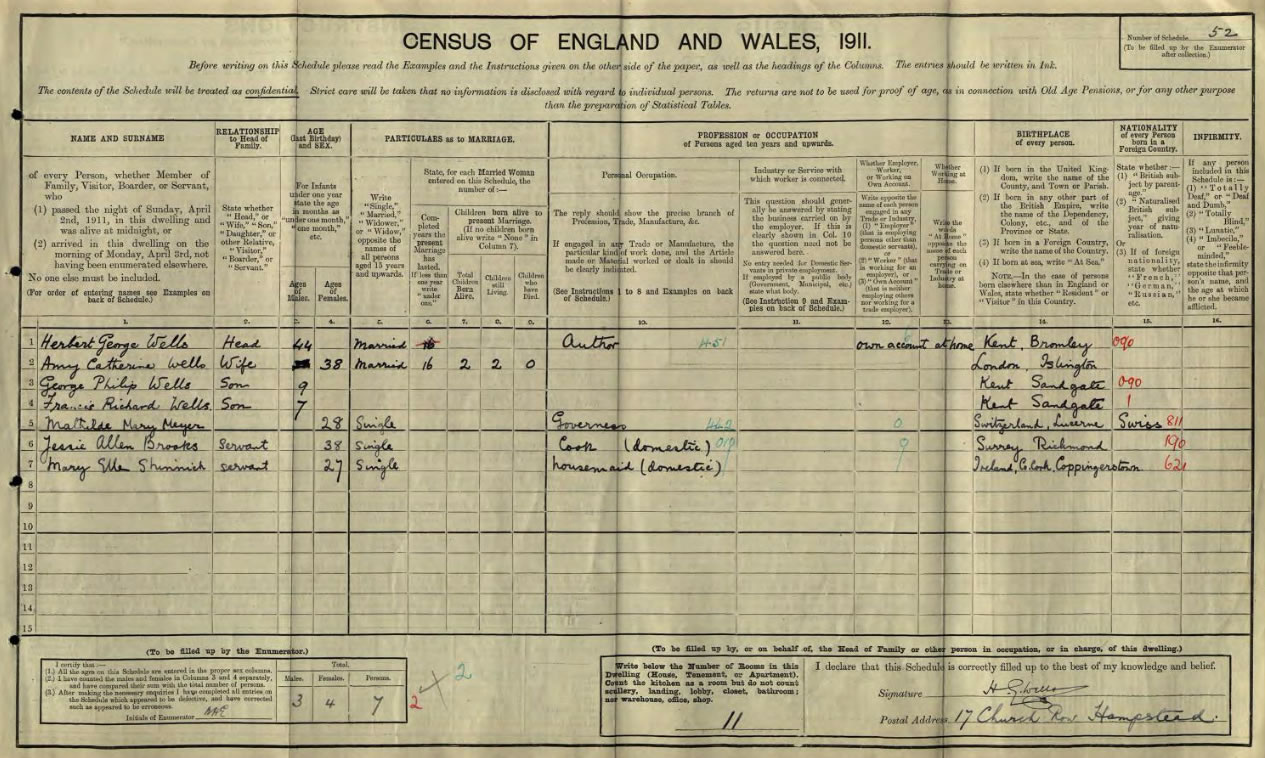 CENSUS OF ENGLAND AND WALES, 1911.
Number of Schedule 52
(To be filled up by the Enumerator
after collection.)
Before writing on this Schedule please read the Examples and the Instructions given on the other side of the paper, as well as the headings of the Columns. The entries should be written in Ink.
The contents of the Schedule will be treated as confidential. Strict care will be taken that no information is disclosed with regard to individual persons. The returns are not to be used for proof of age, as in connection with Old Age Pensions, or for any other purpose
than the preparation of Statistical Tables.
NAME AND SURNAME
of every Person, whether Member of
Family, Visitor, Boarder, or Servant,
who
(1) passed the night of Sunday, April
2nd, 1911, in this dwelling and
was alive at midnight, or
(2) arrived in this dwelling on the
morning of Monday, April 3rd, not
having been enumerated elsewhere.
No one else must be included.
(For order of entering names see Examples on
back of Schedule.)
RELATIONSHIP
to Head of
Family.
State whether
"Head," or
"Wife," "Son,"
"Daughter," or
other Relative,
"Visitor,"
"Boarder," or
"Servant."
AGE
(last Birthday)
and SEX.
For Infants
under one year
state the age
in months as
"under one month,"
"one month,"
etc.
Ages
of
Males.
Ages
of
Females.
PARTICULARS as to MARRIAGE.
Write
"Single,"
"Married,"
"Widower,"
or "Widow,"
opposite the
names of
all persons
aged 15 years
and upwards.
State, for each Married Woman
entered on this Schedule, the
number of:—
Completed
years the
present
Marriage
has
lasted.
If less than
one year
write
"under
one."
Children born alive to
present Marriage.
(If no children born
alive write "None" in
Column 7).
Total
Children
Born
Alive.
Children
still
Living.
Children
who
have
Died.
PROFESSION or OCCUPATION
of Persons aged ten years and upwards.
Personal Occupation.
The reply should show the precise branch of
Profession, Trade, Manufacture, &c.
If engaged in any Trade or Manufacture, the
particular kind of work done, and the Article
made or Material worked or dealt in should
be clearly indicated.
(See Instructions 1 to 8 and Examples on back
of Schedule.)
Industry or Service with
which worker is connected.
This question should generally
be answered by stating
the business carried on by
the employer. If this is
clearly shown in Col. 10
the question need not be
answered here.
No entry needed for Domestic Servants
in private employment.
If employed by a public body
(Government, Municipal, etc.)
state what body.
(See Instruction 9 and Examples
on back of Schedule.)
Whether Employer,
Worker,
or Working on
Own Account.
Write opposite the
name of each person
engaged in any
Trade or Industry,
(1) "Employer"
(that is employing
persons other than
domestic servants),
or
(2) "Worker" (that
is working for an
employer), or
(3) "Own Account"
(that is neither
employing others
nor working for a
trade employer).
Whether
Working at
Home.
Write the
words
"At Home"
opposite the
name of each
person
carrying on
Trade or
Industry at
home.
BIRTHPLACE
of every person.
(1) If born in the United Kingdom,
write the name of the
County, and Town or Parish.
(2) If born in any other part of
the British Empire, write
the name of the Dependency,
Colony, etc., and of the
Province or State.
(3) If born in a Foreign Country,
write the name of the Country.
(4) If born at sea, write "At Sea."
NOTE.—In the case of persons
born elsewhere than in England or
Wales, state whether "Resident" or
"Visitor" in this Country.
NATIONALITY
of every Person
born in a
Foreign Country.
State whether:—
(1) "British subject
by parentage."
(2) "Naturalised
British subject,"
giving
year of naturalisation.
Or
(3) If of foreign
nationality,
state whether
"French,"
"German,"
"Russian,"
etc.
INFIRMITY.
If any person
included in this
Schedule is:—
(1) "Totally
Deaf," or "Deaf
and Dumb,"
(2) "Totally
Blind,"
(3) "Lunatic,"
(4) "Imbecile,"
or "Feeble-minded,"
state the infirmity
opposite that person's
name, and
the age at which
he or she became
afflicted.
1. 2. 3. 4. 5. 6. 7. 8. 9. 10. 11. 12. 13. 14. 15. 16.
1 Herbert George Wells Head 44 Married 16 Author 451 own account at home Kent, Bromley 090
2 Amy Catherine Wells Wife 38 Married 16 2 2 0 London, Islington
3 George Philip Wells Son 9 Kent Sandgate 090
4 Francis Richard Wells Son 7 Kent Sandgate 1
5 Mathilde Mary Meyer 28 Single Governess 442 0 Switzerland, Lucerne Swiss 811
6 Jessie Allen Brooks Servant 38 Single Cook (domestic) 019 9 Surrey Richmond 190
7 Mary Ellen Shinnick servant 27 Single housemaid (domestic) Ireland, Co. Cork, Coppingerstown 621
8
9
10
11
12
13
14
15
(To be filled up by the Enumerator.)
I certify that:—
(1.) All the ages on this Schedule are entered in the proper sex columns.
(2.) I have counted the males and females in Columns 3 and 4 separately,
and have compared their sum with the total number of persons.
(3.) After making the necessary enquiries I have completed all entries on
the Schedule which appeared to be defective, and have corrected
such as appeared to be erroneous.
Initials of Enumerator
Total.
Males. Females. Persons.
3 4 7
2 2
(To be filled up by, or on behalf of, the Head of Family or other person in occupation, or in charge, of this dwelling.)
Write below the Number of Rooms in this
Dwelling (House, Tenement, or Apartment).
Count the kitchen as a room but do not count
scullery, landing, lobby, closet, bathroom;
nor warehouse, office, shop.
11
I declare that this Schedule is correctly filled up to the best of my knowledge and belief.
Signature H. G. Wells
Postal Address 17 Church Row Hampstead.